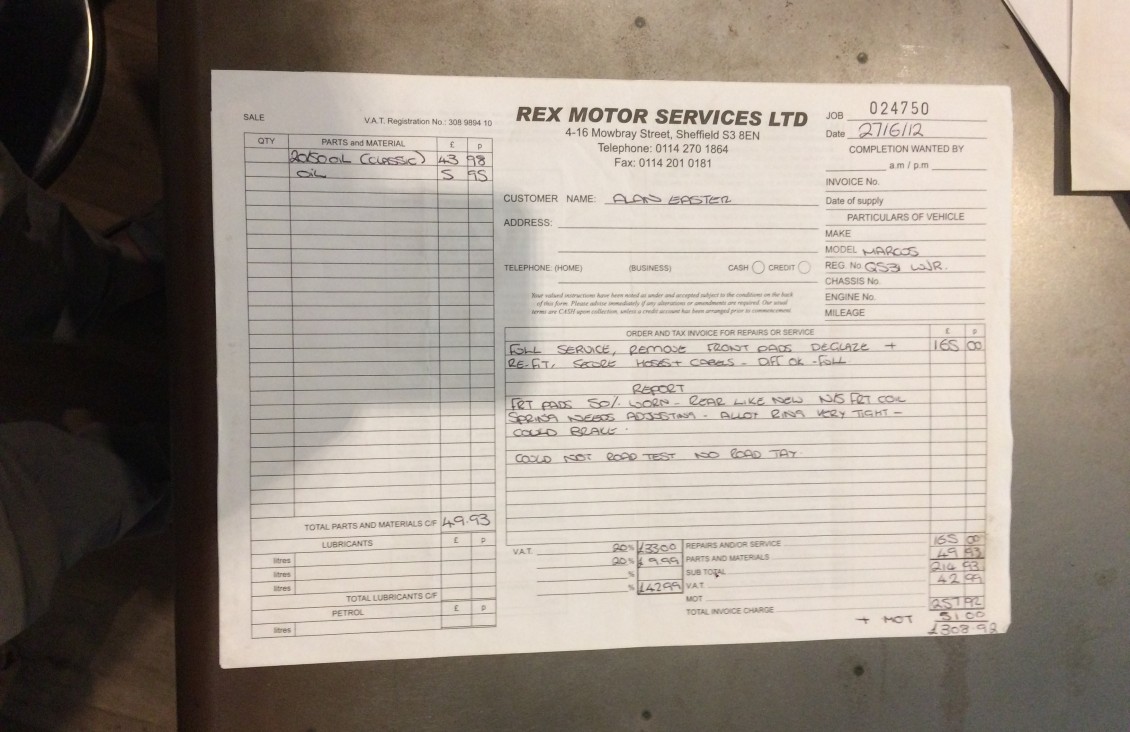 SALE
V.A.T. Registration No.: 308 9894 10
QTY PARTS and MATERIAL £ p
20/50 OIL (CLASSIC) 43 98
OIL 5 95
TOTAL PARTS AND MATERIALS C/F 49.93
LUBRICANTS £ p
litres
litres
litres
TOTAL LUBRICANTS C/F
PETROL £ p
litres
REX MOTOR SERVICES LTD
4-16 Mowbray Street, Sheffield S3 8EN
Telephone: 0114 270 1864
Fax: 0114 201 0181
JOB 024750
Date 27/6/12
COMPLETION WANTED BY
a.m / p.m
INVOICE No.
Date of supply
PARTICULARS OF VEHICLE
MAKE
MODEL MARCOS
REG. No Q531 WJR.
CHASSIS No.
ENGINE No.
MILEAGE
CUSTOMER NAME: ALAN EASTER
ADDRESS:
TELEPHONE: (HOME) (BUSINESS) CASH CREDIT
Your valued instructions have been noted as under and accepted subject to the conditions on the back
of this form. Please advise immediately if any alterations or amendments are required. Our usual
terms are CASH upon collection, unless a credit account has been arranged prior to commencement.
ORDER AND TAX INVOICE FOR REPAIRS OR SERVICE £ p
FULL SERVICE, REMOVE FRONT PADS DEGLAZE + 165 00
RE-FIT, SECURE HOSES + CABELS - DIFF OK - FULL
REPORT
FRT PADS 50% WORN - REAR LIKE NEW N/S FRT COIL
SPRING NEEDS ADJUSTING - ALLOY RING VERY TIGHT -
COULD BRAKE.
COULD NOT ROAD TEST NO ROAD TAX.
V.A.T. 20% £33 00 REPAIRS AND/OR SERVICE 165 00
20% £ 9.99 PARTS AND MATERIALS 49 93
% SUB TOTAL 214 93
% £42 99 V.A.T. 42 99
MOT
TOTAL INVOICE CHARGE 257 92
+ MOT 51 00
£308 92